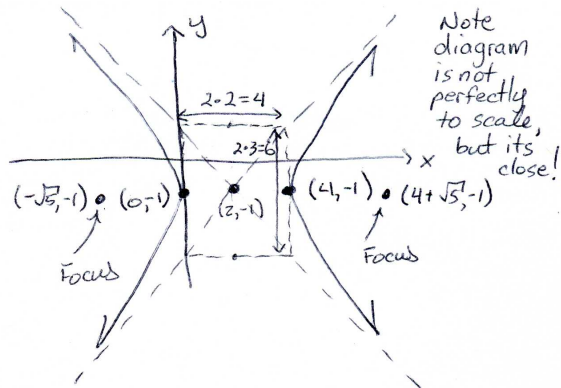 y
Note
diagram
is not
perfectly
to scale,
but its
close!
2•2=4
2•3=6
x
(-√5,-1)
(0,-1)
(2,-1)
(4,-1)
(4+√5,-1)
Focus
Focus